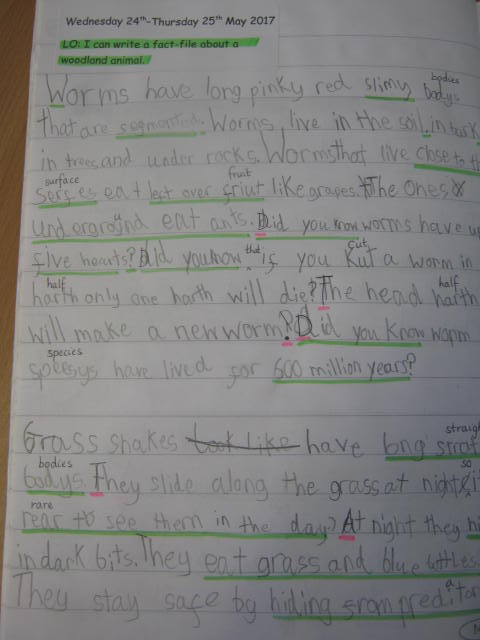 Wednesday 24th-Thursday 25th May 2017
LO: I can write a fact-file about a
woodland animal.
bodies
Worms have long pinky red slimy bodys
that are segmented. Worms live in the soil, in bark
in trees and under rocks. Worms that live close to th
surface fruit
serfes eat left over friut like grapes. The ones
underground eat ants. Did you know worms have up
that cut
five hearts? Did you know if you Kut a worm in
half half
harth only one harth will die? The head harth
will make a new worm? Did you know worm
species
speesys have lived for 600 million years?
straigh
Grass snakes look like have long strat
bodies so
bodys. They slide along the grass at night it
rare
rear to see them in the day? At night they hi
in dark bits. They eat grass and blue bottles
a
They stay safe by hiding from preditor